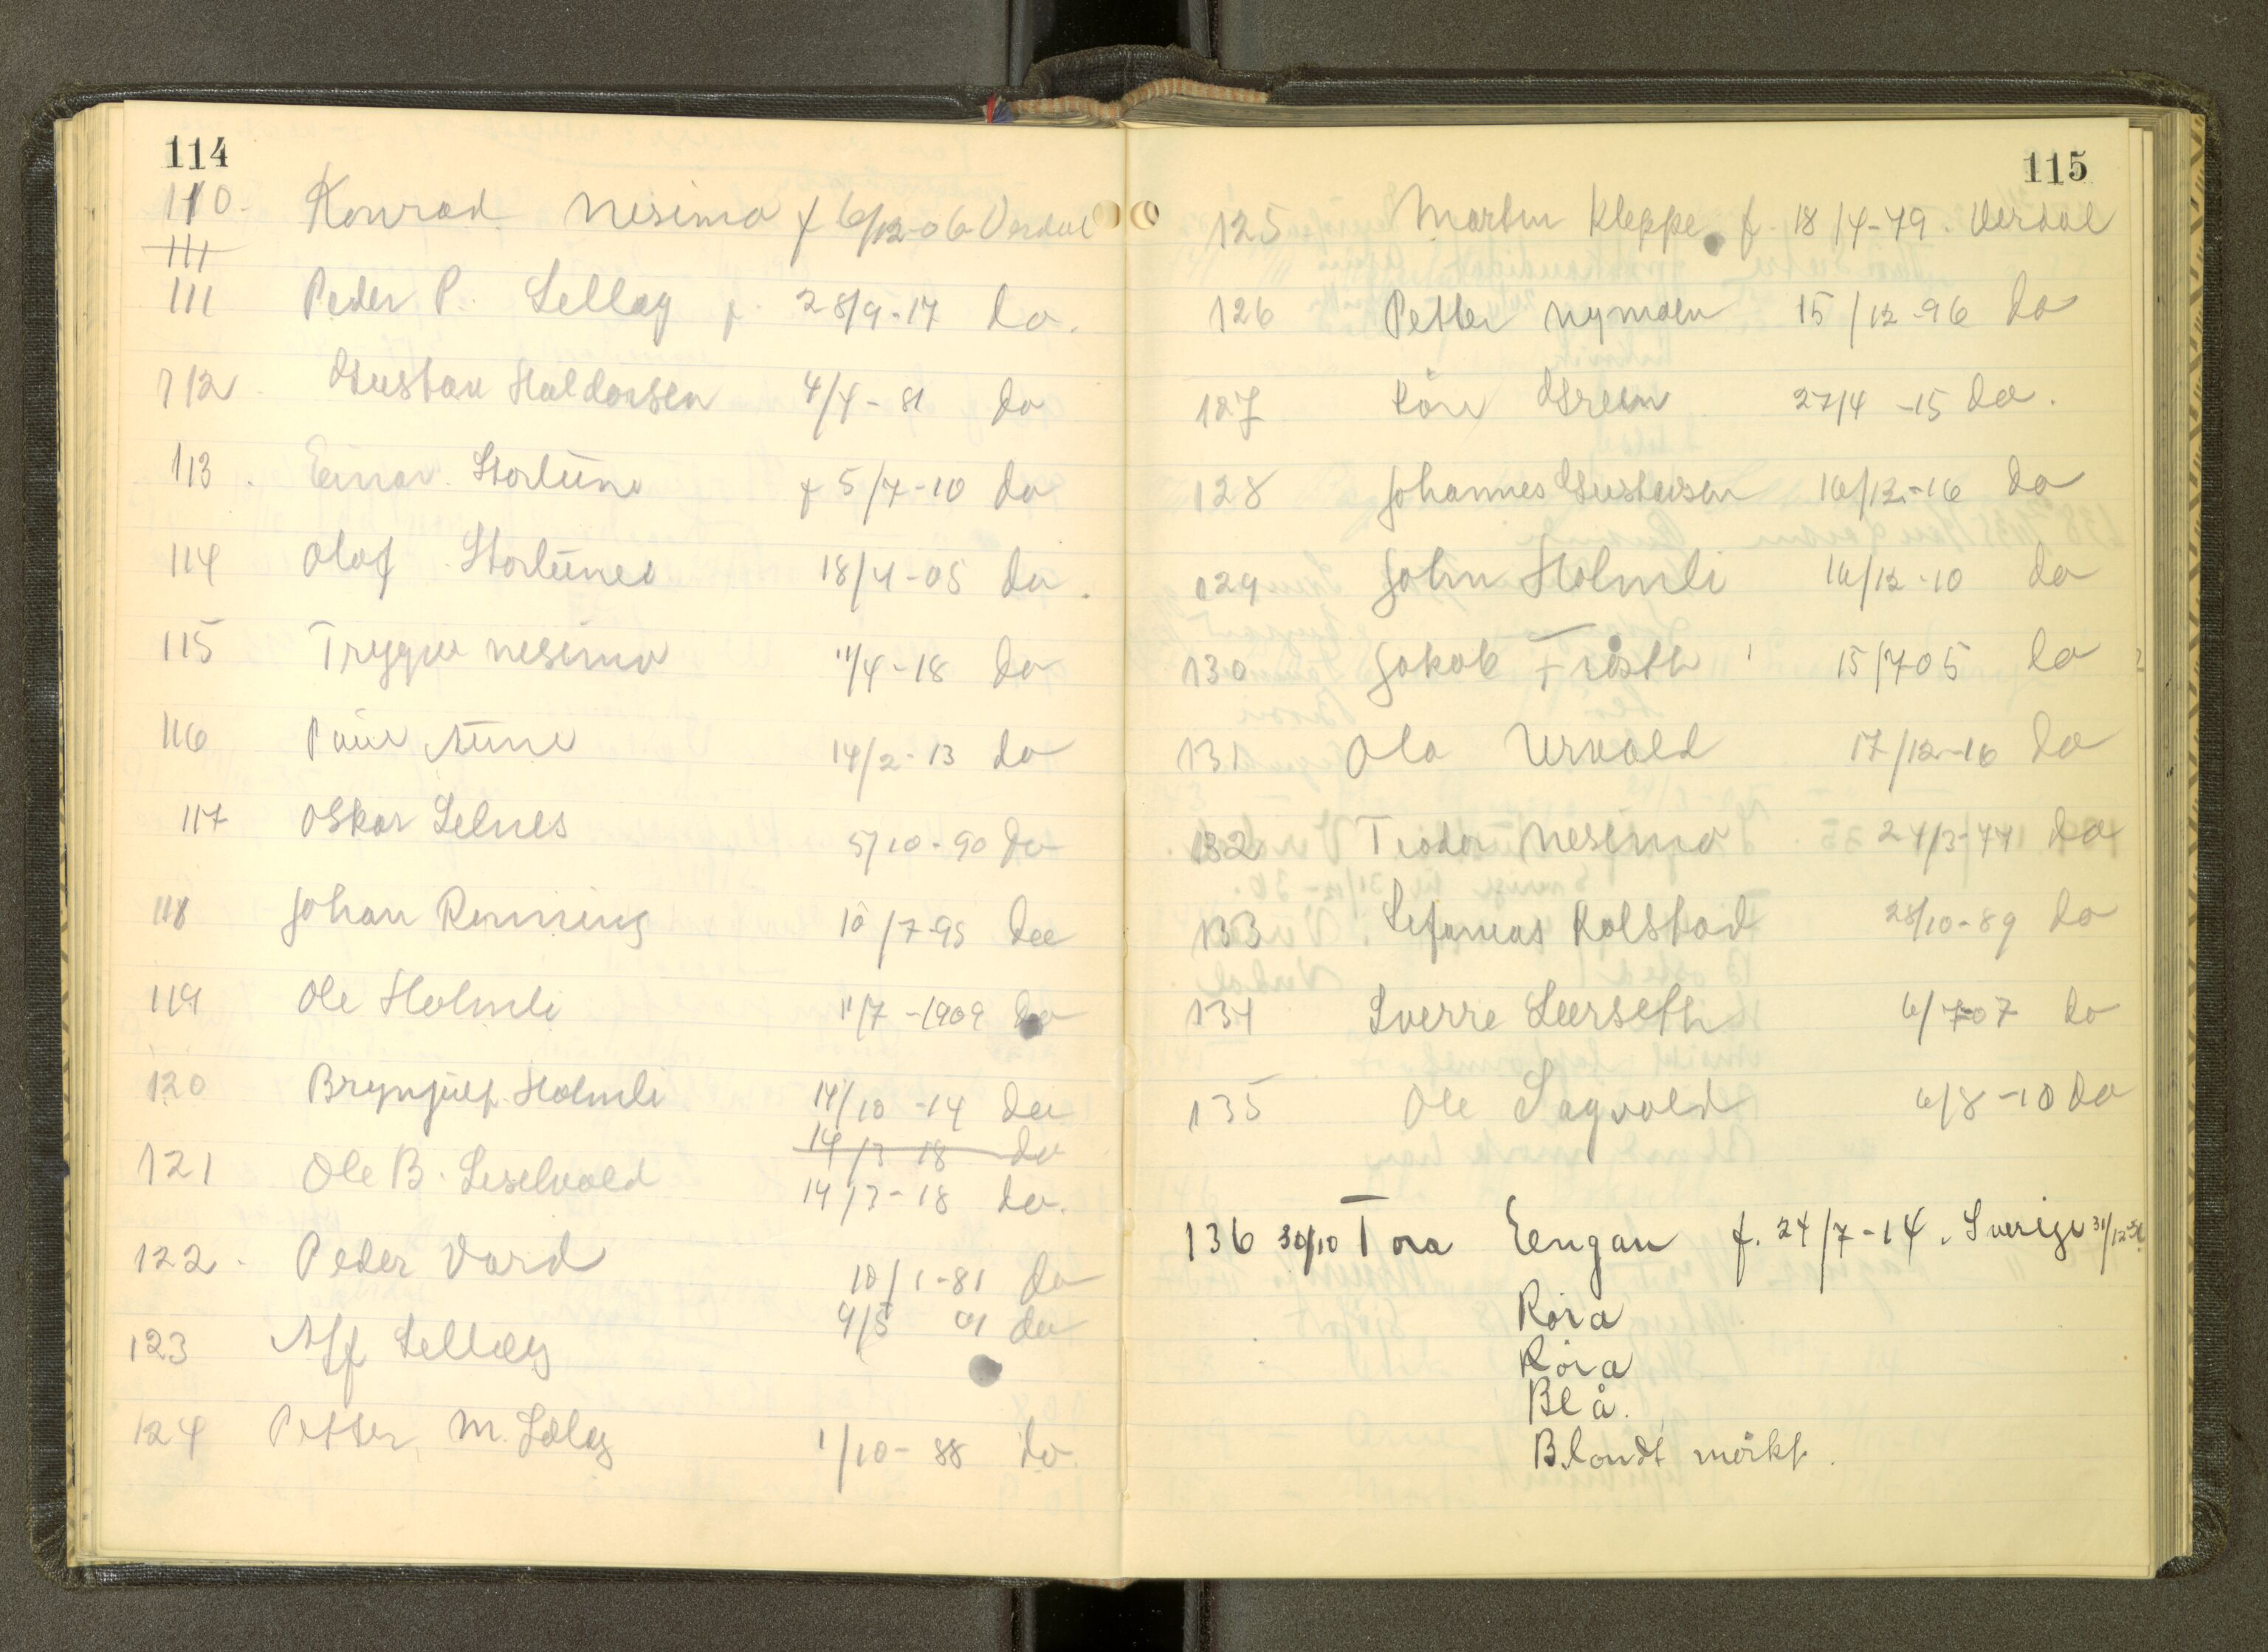 114
110. Konrad Nesimo f 6/12-06 Verdal
111
111 Peder P. Lellæg f. 28/9-17 do.
112 Gustav Haldorsen 4/4-81 do
113. Einar Stortūne f 5/7-10 do
114 Olaf Stortūnes 18/4-05 do.
115 Trygve Nesimo 11/4-18 do
116 14/2-13 do
117 Oskar Lelnes 5/10-90 do
118 Johan Renning 10/7-95 do
119 Ole Holmli 11/7-1909 do
120 Brynjulf Holmli 14/10-14 do
14/3 18 do
121 Ole B. 14/3-18 do.
122. Peder Vard 10/1-81 do
9/5 01 do
123 Alf Lellæg
124 Petter M. 1/10-88 do.
115
125 Martin Kleppe f. 18/4-79. Verdal
126 Petter Nymoen 15/12-96 do
127 Kåre Green 27/4-15 do.
128 Johannes Gustavsen 16/12-16 do
129 John Holmli 16/12-10 do
130 Jakob 15/7-05 do
131 Ola Urvold 17/12-16 do
132 Teodor Nesimo 24/3-77 do
133 Kolstad 28/10-89 do
134 Sverre Leerseth 6/7-07 do
135 Ole Sagvold 6/8-10 do
136 30/10 Tora Eengan f. 24/7-14. Sverige 31/12-36
Röra
Röra
Blå.
Blondt mörkt.